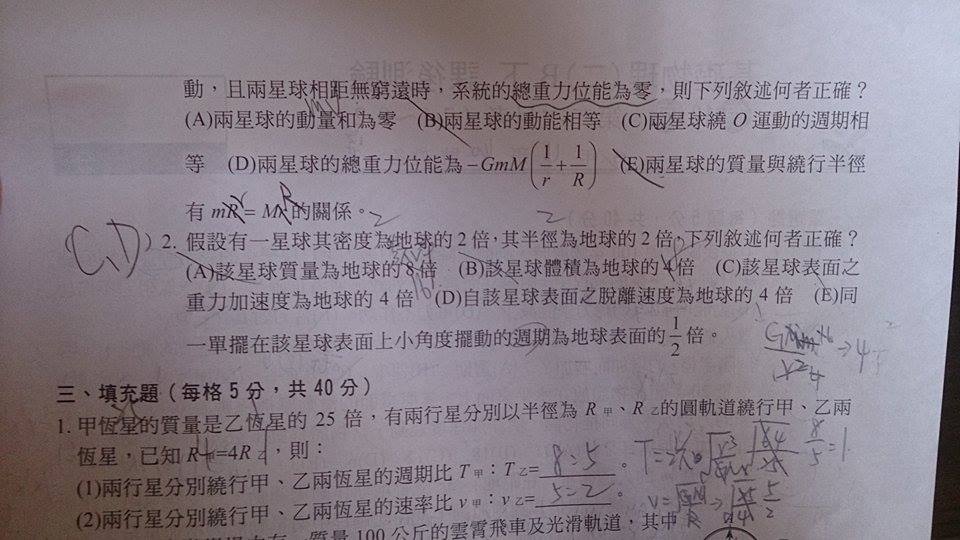 動，且兩星球相距無窮遠時，系統的總重力位能為零，則下列敘述何者正確？
(A)兩星球的動量和為零 (B)兩星球的動能相等 (C)兩星球繞 O 運動的週期相
等 (D)兩星球的總重力位能為 −GmM(1/r + 1/R) (E)兩星球的質量與繞行半徑
有 mR = Mr 的關係。
(C,D) 2. 假設有一星球其密度為地球的 2 倍，其半徑為地球的 2 倍，下列敘述何者正確？
(A)該星球質量為地球的 8 倍 (B)該星球體積為地球的 4 倍 (C)該星球表面之
重力加速度為地球的 4 倍 (D)自該星球表面之脫離速度為地球的 4 倍 (E)同
一單擺在該星球表面上小角度擺動的週期為地球表面的 1/2 倍。
三、填充題（每格 5 分，共 40 分）
1. 甲恆星的質量是乙恆星的 25 倍，有兩行星分別以半徑為 R甲、R乙 的圓軌道繞行甲、乙兩
恆星，已知 R甲=4R乙，則：
(1)兩行星分別繞行甲、乙兩恆星的週期比 T甲：T乙= 8:5 。
(2)兩行星分別繞行甲、乙兩恆星的速率比 v甲：v乙= 5=2 。
質量 100 公斤的雲霄飛車及光滑軌道，其中